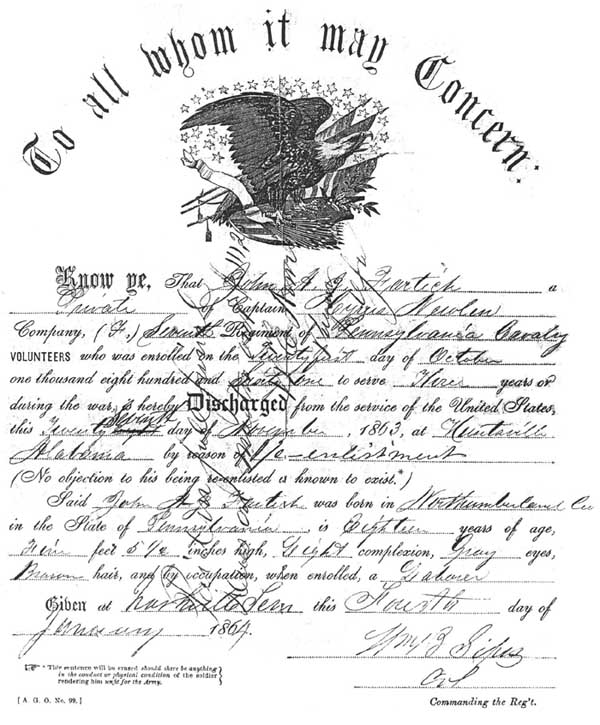 To all whom it may Concern:
Know ye, That John A. J. a
Private of Captain Cyrus Newlen
Company, (F.) Seventh Regiment of Pennsylvania Cavalry
VOLUNTEERS who was enrolled on the Twenty first day of October
one thousand eight hundred and Sixty One to serve Three years or
during the war, is hereby Discharged from the service of the United States,
this Twenty Seventh day of November, 1863, at Huntsville
Alabama by reason of re-enlistment
(No objection to his being re-enlisted is known to exist.*)
Said John A. J. was born in Northumberland Co
in the State of Pennsylvania, is Eighteen years of age,
Five feet 5 1/2 inches high, Light complexion, Gray eyes,
Brown hair, and by occupation, when enrolled, a Laborer
Given at Nashville Tenn this Fourth day of
January 1864.
Wm B Sipes
Col
Commanding the Reg't.
* This sentence will be erased should there be anything
in the conduct or physical condition of the soldier
rendering him unfit for the Army.
[A. G. O. No. 99.]